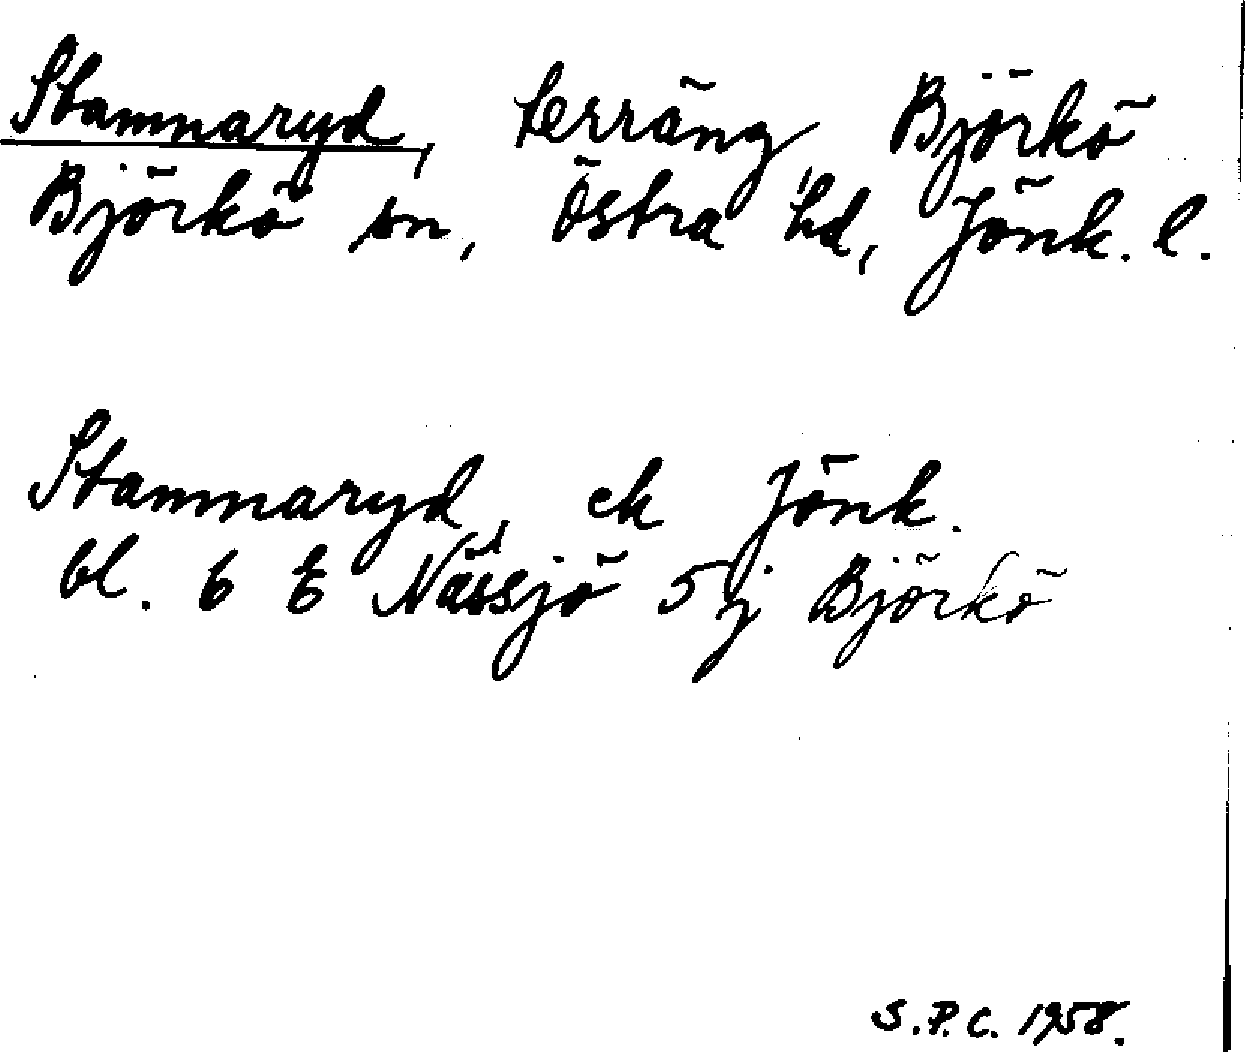 Stamnaryd, terräng, Björkö
Björkö sn, Östra hd, Jönk. l.
Stamnaryd, ek Jönk.
bl. 6 E Nässjö 5 j Björkö
S.P.C. 1958.